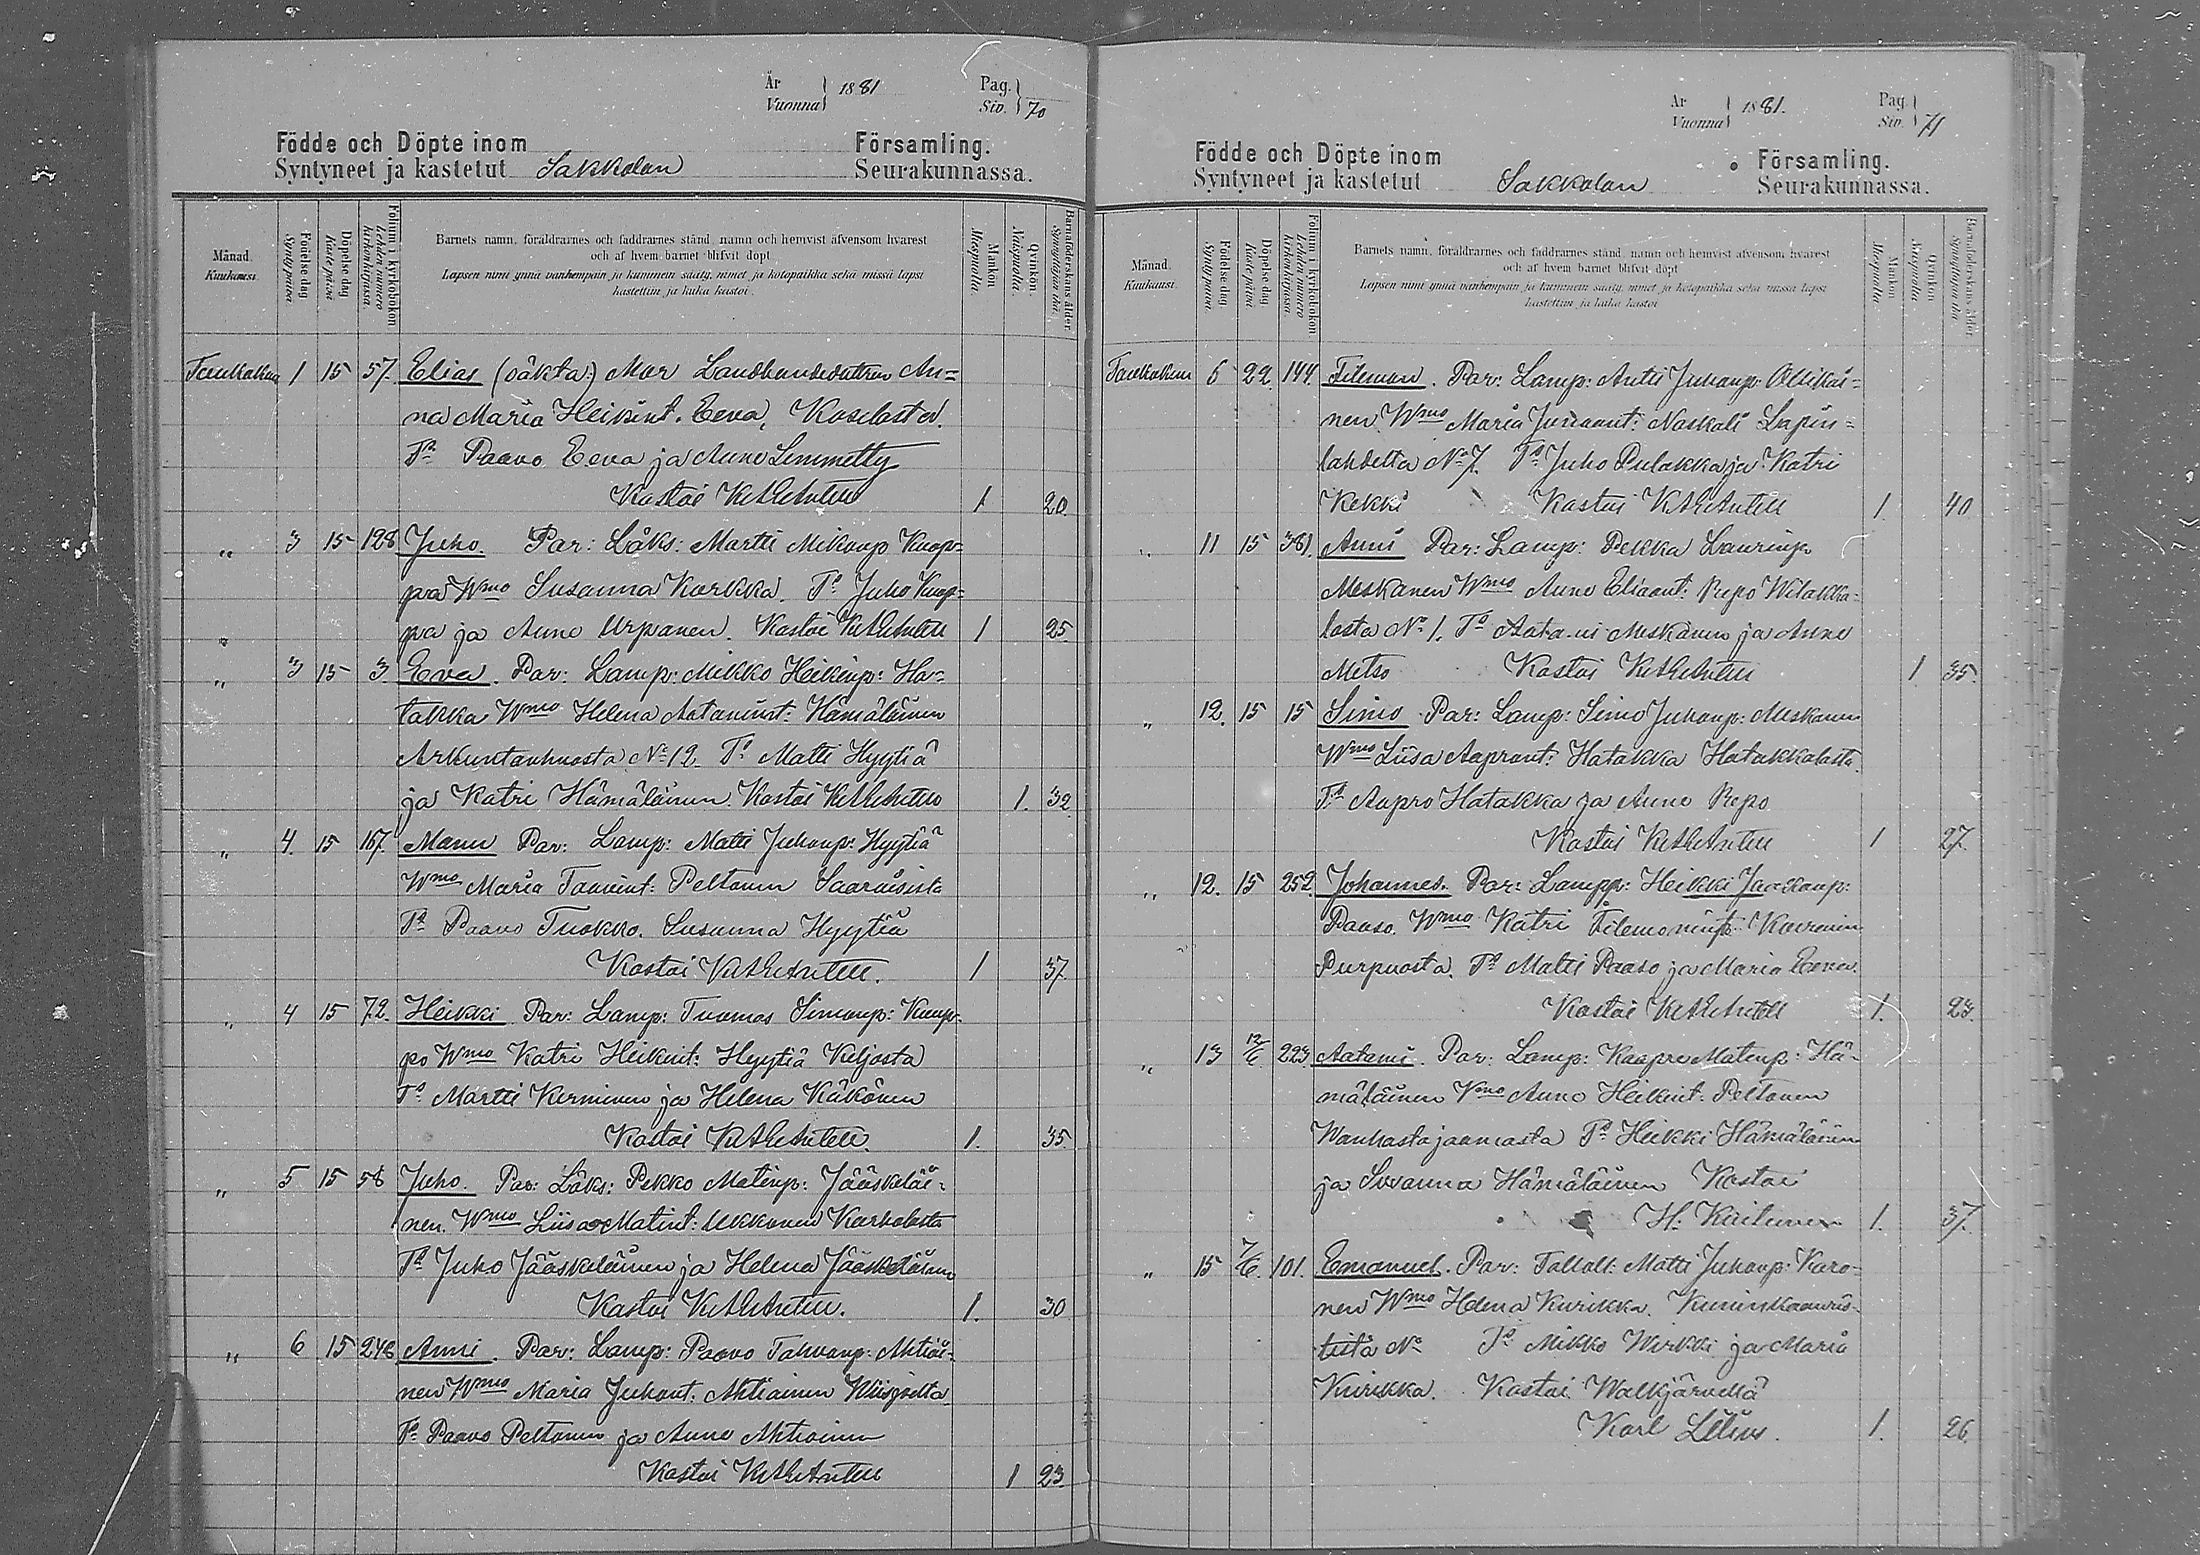 År
Vuonna } 1881
Pag.
Siv. } 70
Födde och Döpte inom Församling.
Syntyneet ja kastetut Sakkolan Seurakunnassa.
Månad.
Kuukausi.
Födelsedag
Syntypäivä
Döpelsedag
Kastepäivä
Folium i kyrkobokon
Lehden numero
kirkonkirjassa.
Barnets namn, föräldrarnes och faddrarnes stånd, namn och hemvist äfvensom hvarest
och af hvem barnet blifvit döpt
Lapsen nimi ynnä vanhempain ja kummein sääty, nimet ja kotopaikka sekä missä lapsi
kastettiin ja kuka kastoi.
Mankön
Miespuolia.
Qvinkön.
Naispuolia.
Barnaföderskans ålder.
Synnyttäjän ikä.
Toukokuu 1 15 57. Elias (oäkta:) Mor Landbondedottren An=
na Maria Heikint. Eeva, Koselast:a.
Td Paavo Eeva ja Anno Simmetty
Kastoi 1 20.
„ 3 15 128 Juho. Par: Läks: Martti Mikonp Kuop=
pa Wmo Susanna Korkka. Td Juho Kuop=
pa ja Anno Urpanen. Kastoi 1 25
„ 3 15 3 Eeva. Par: Lamp: Mikko Heikinp: Ha=
takka Wmo Helena Aatamint: Hämäläinen
Arkuntanhuasta No 12 Td Matti Hyytiä
ja Katri Hämäläinen. Kastoi 1. 32
„ 4. 15 167. Manu Par: Lamp: Matti Juhonp: Hyytiä
Wmo Maria Taavint: Peltonen Saaroisista
Td Paavo Tuokko. Susanna Hyytiä
Kastoi 1 37.
„ 4 15 72. Heikki. Par: Lamp: Tuomas Simonp: Kuop=
po Wmo Katri Heikint: Hyytiä Keljasta
Td Martti Kerminen ja Helena Käkönen
Kastoi 1. 35
„ 5 15 58 Juho. Par: Läks: Pekko Matinp: Jääskeläi=
nen. Wmo Liisa Matint: Ukkonen Karholasta
Td Juho Jääskeläinen ja Helena Jääskeläinen
Kastoi 1. 30
„ 6 15 248 Anni. Par: Lamp: Paavo Tahvanp: Ahtiai=
nen Wmo Maria Juhont: Ahtiainen Wiisjoelta.
Td Paavo Peltonen ja Anno Ahtiainen
Kastoi 1 23.
År
Vuonna } 1881.
Pag.
Siv. } 71
Födde och Döpte inom Församling.
Syntyneet ja kastetut Sakkolan Seurakunnassa.
Månad.
Kuukausi.
Födelsedag
Syntypäivä.
Döpelsedag
Kastepäivä.
Folium i kyrkobokon
Lehden numero
kirkonkirjassa.
Barnets namn, föräldrarnes och faddrarnes stånd, namn och hemvist äfvensom hvarest
och af hvem barnet blifvit döpt
Lapsen nimi ynnä vanhempain ja kummein sääty, nimet ja kotopaikka sekä missä lapsi
kastettiin ja kuka kastoi
Mankön
Miespuolia
Qvinkön
Naispuolia
Barnaföderskans ålder.
Synnyttäjän ikä
Toukokuu 5 22. 144. Fileman. Par: Lamp: Antti Juhonp: Ollikai=
nen Wmo Maria Juhont: Naskali Lapin=
lahdelta No 7. Td Juho Pulakka ja Katri
Kekki Kastoi 1. 40
„ 11 15 381. Anni Par: Lamp: Pekka Laurinp
Meskanen Wmo Anno Eliaant: Repo Wilakka=
lasta No 1. Td Aatami Meskanen ja Anno
Metso Kastoi 1 35.
„ 12. 15 15 Simo Par: Lamp: Simo Juhonp: Meskanen
Wmo Liisa Aapront: Hatakka Hatakkalasta.
Td Aapro Hatakka ja Anno Repo
Kastoi 1 27.
„ 12. 15 252. Johannes. Par: Lampp: Heikki Jaakonp:
Paaso. Wmo Katri Filemonint:
Purpuasta. Td Matti Paaso ja Maria Eeva.
Kastoi 1. 23.
„ 13 12/6 223. Aatami. Par: Lamp: Kaapre Matinp: Hä=
mäläinen Vmo Anno Heikint: Peltonen
Wanhastajaamasta Td Heikki Hämäläinen
ja Susanna Hämäläinen Kastoi
H. 1. 37.
„ 15 7/6. 101. Emanuel. Par: Matti Juhonp: Karo=
nen Wmo Helena Kurikka. Kuninkaanris=
tistä No Td Mikko Wirkki ja Maria
Kurikka. Kastoi Walkjärvellä
Karl Lilius. 1. 26.